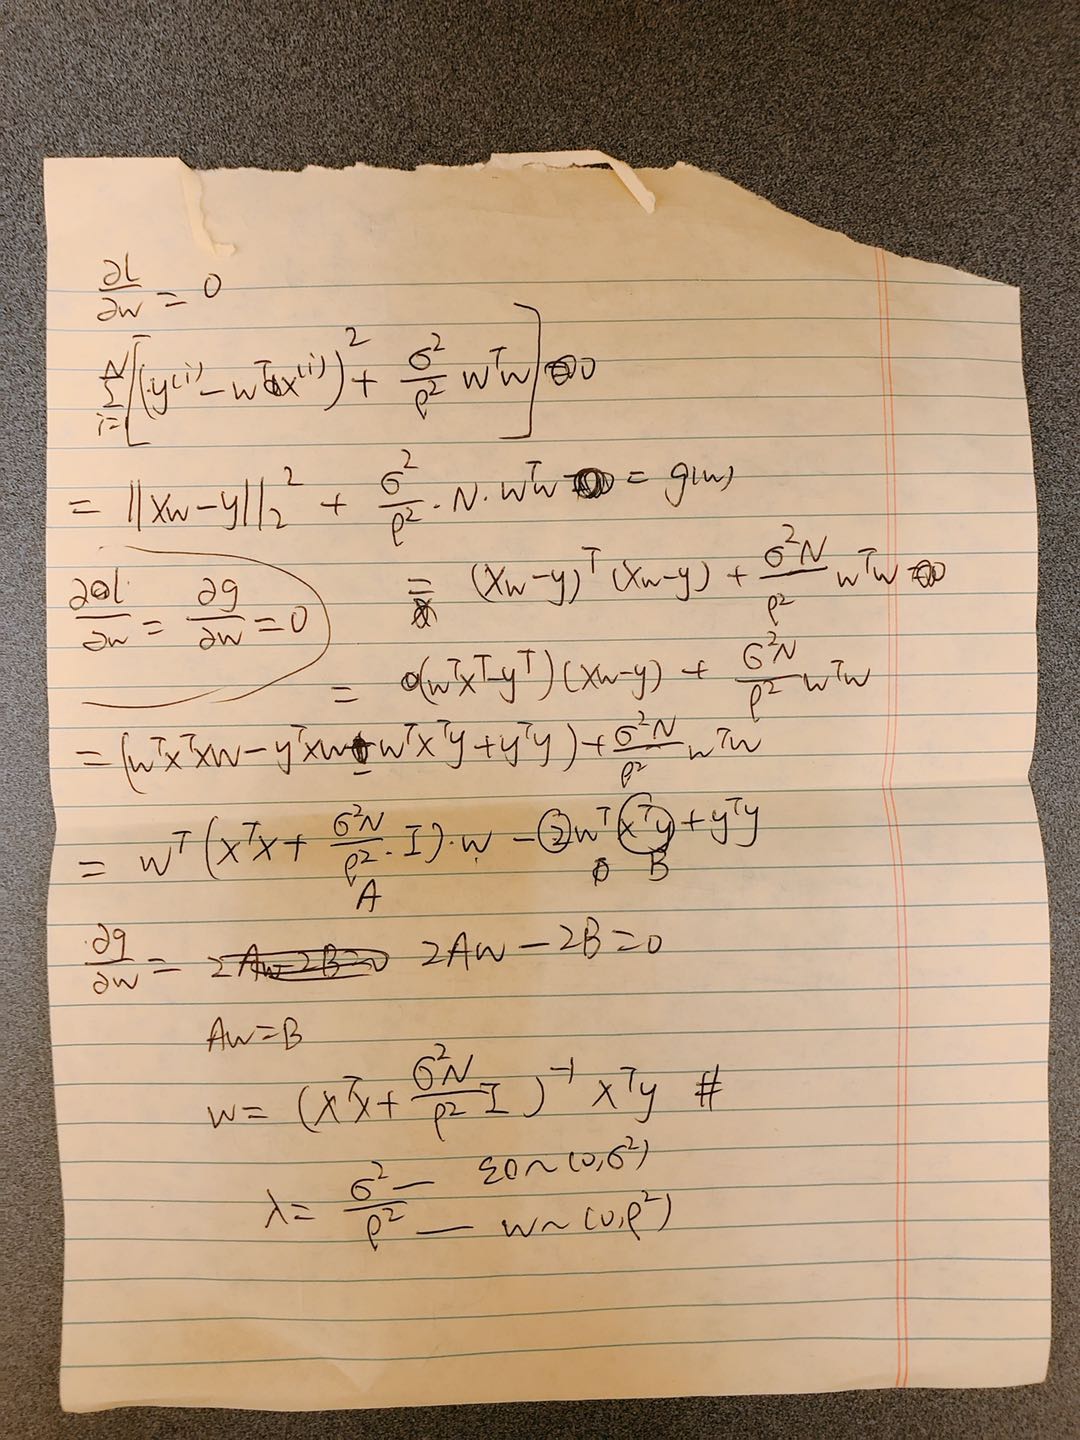 ∂l/∂w = 0
Σ_{i=1}^{N} [(y^{(i)} - w^T x^{(i)})^2 + σ^2/ρ^2 w^T w] 0
= ||Xw - y||_2^2 + σ^2/ρ^2 · N · w^T w = g(w)
∂l/∂w = ∂g/∂w = 0
= (Xw - y)^T (Xw - y) + σ^2N/ρ^2 w^T w
= (w^T X^T - y^T)(Xw - y) + σ^2N/ρ^2 w^T w
= (w^T X^T Xw - y^T Xw - w^T X^T y + y^T y) + σ^2N/ρ^2 w^T w
= w^T (X^T X + σ^2N/ρ^2 · I) · w - 2 w^T X^T y + y^T y
A B
∂g/∂w = 2Aw - 2B = 0
Aw = B
w = (X^T X + σ^2N/ρ^2 I)^{-1} X^T y #
λ = σ^2/ρ^2
— ε0 ~ (0, σ^2)
— w ~ (0, ρ^2)